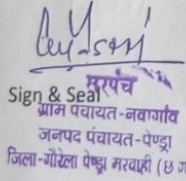 सरपंच
Sign & Seal
ग्राम पंचायत-नवागाँव
जनपद पंचायत-पेण्ड्रा
जिला-गौरेला पेण्ड्रा मरवाही (छ ग